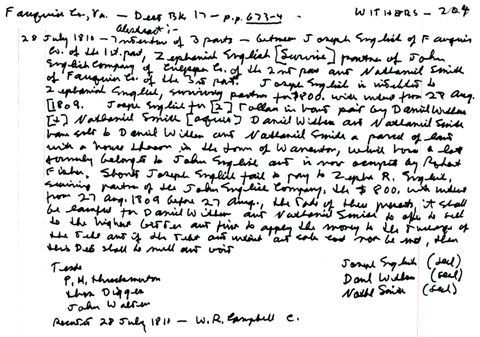 Fauquier Co., Va. — Deed Bk 17 — p.p. 673-4 WITHERS — 204
Abstract:-
28 July 1810 — Indenture of 3 parts — between Joseph English of Fauquier
Co. of the 1st part, Zephaniah English [Surviving] partner of John
English Company of Culpeper Co. of the 2nd part and Nathaniel Smith
of Fauquier Co. of the 3rd part. Joseph English is indebted to
Zephaniah English, surviving partner for $800, with interest from 28 Aug.
1809. Joseph English for [2] Dollars in hand paid by Daniel Withers
[+] Nathaniel Smith Daniel Withers and Nathaniel Smith
sells to Daniel Withers and Nathaniel Smith a parcel of land
with a house thereon in the town of Warrenton, which house & lot
formerly belonged to John English and is now occupied by Robert
Fisher. Should Joseph English fail to pay to Zepha R. English,
surviving partner of the John English Company, the $800, with interest
from 27 Aug. 1809 before 27 Aug., the date of these presents, it shall
be lawful for Daniel Withers and Nathaniel Smith to offer to sell
to the highest bidder and first to apply the money to the
the debt and if the debt and interest and costs be met, then
this Deed shall be null and void
Teste Joseph English (seal)
P. H. Danl Withers (seal)
Thos Digges Nathl Smith (seal)
John Walden
Recorded 28 July 1810 — W. R. Campbell C.